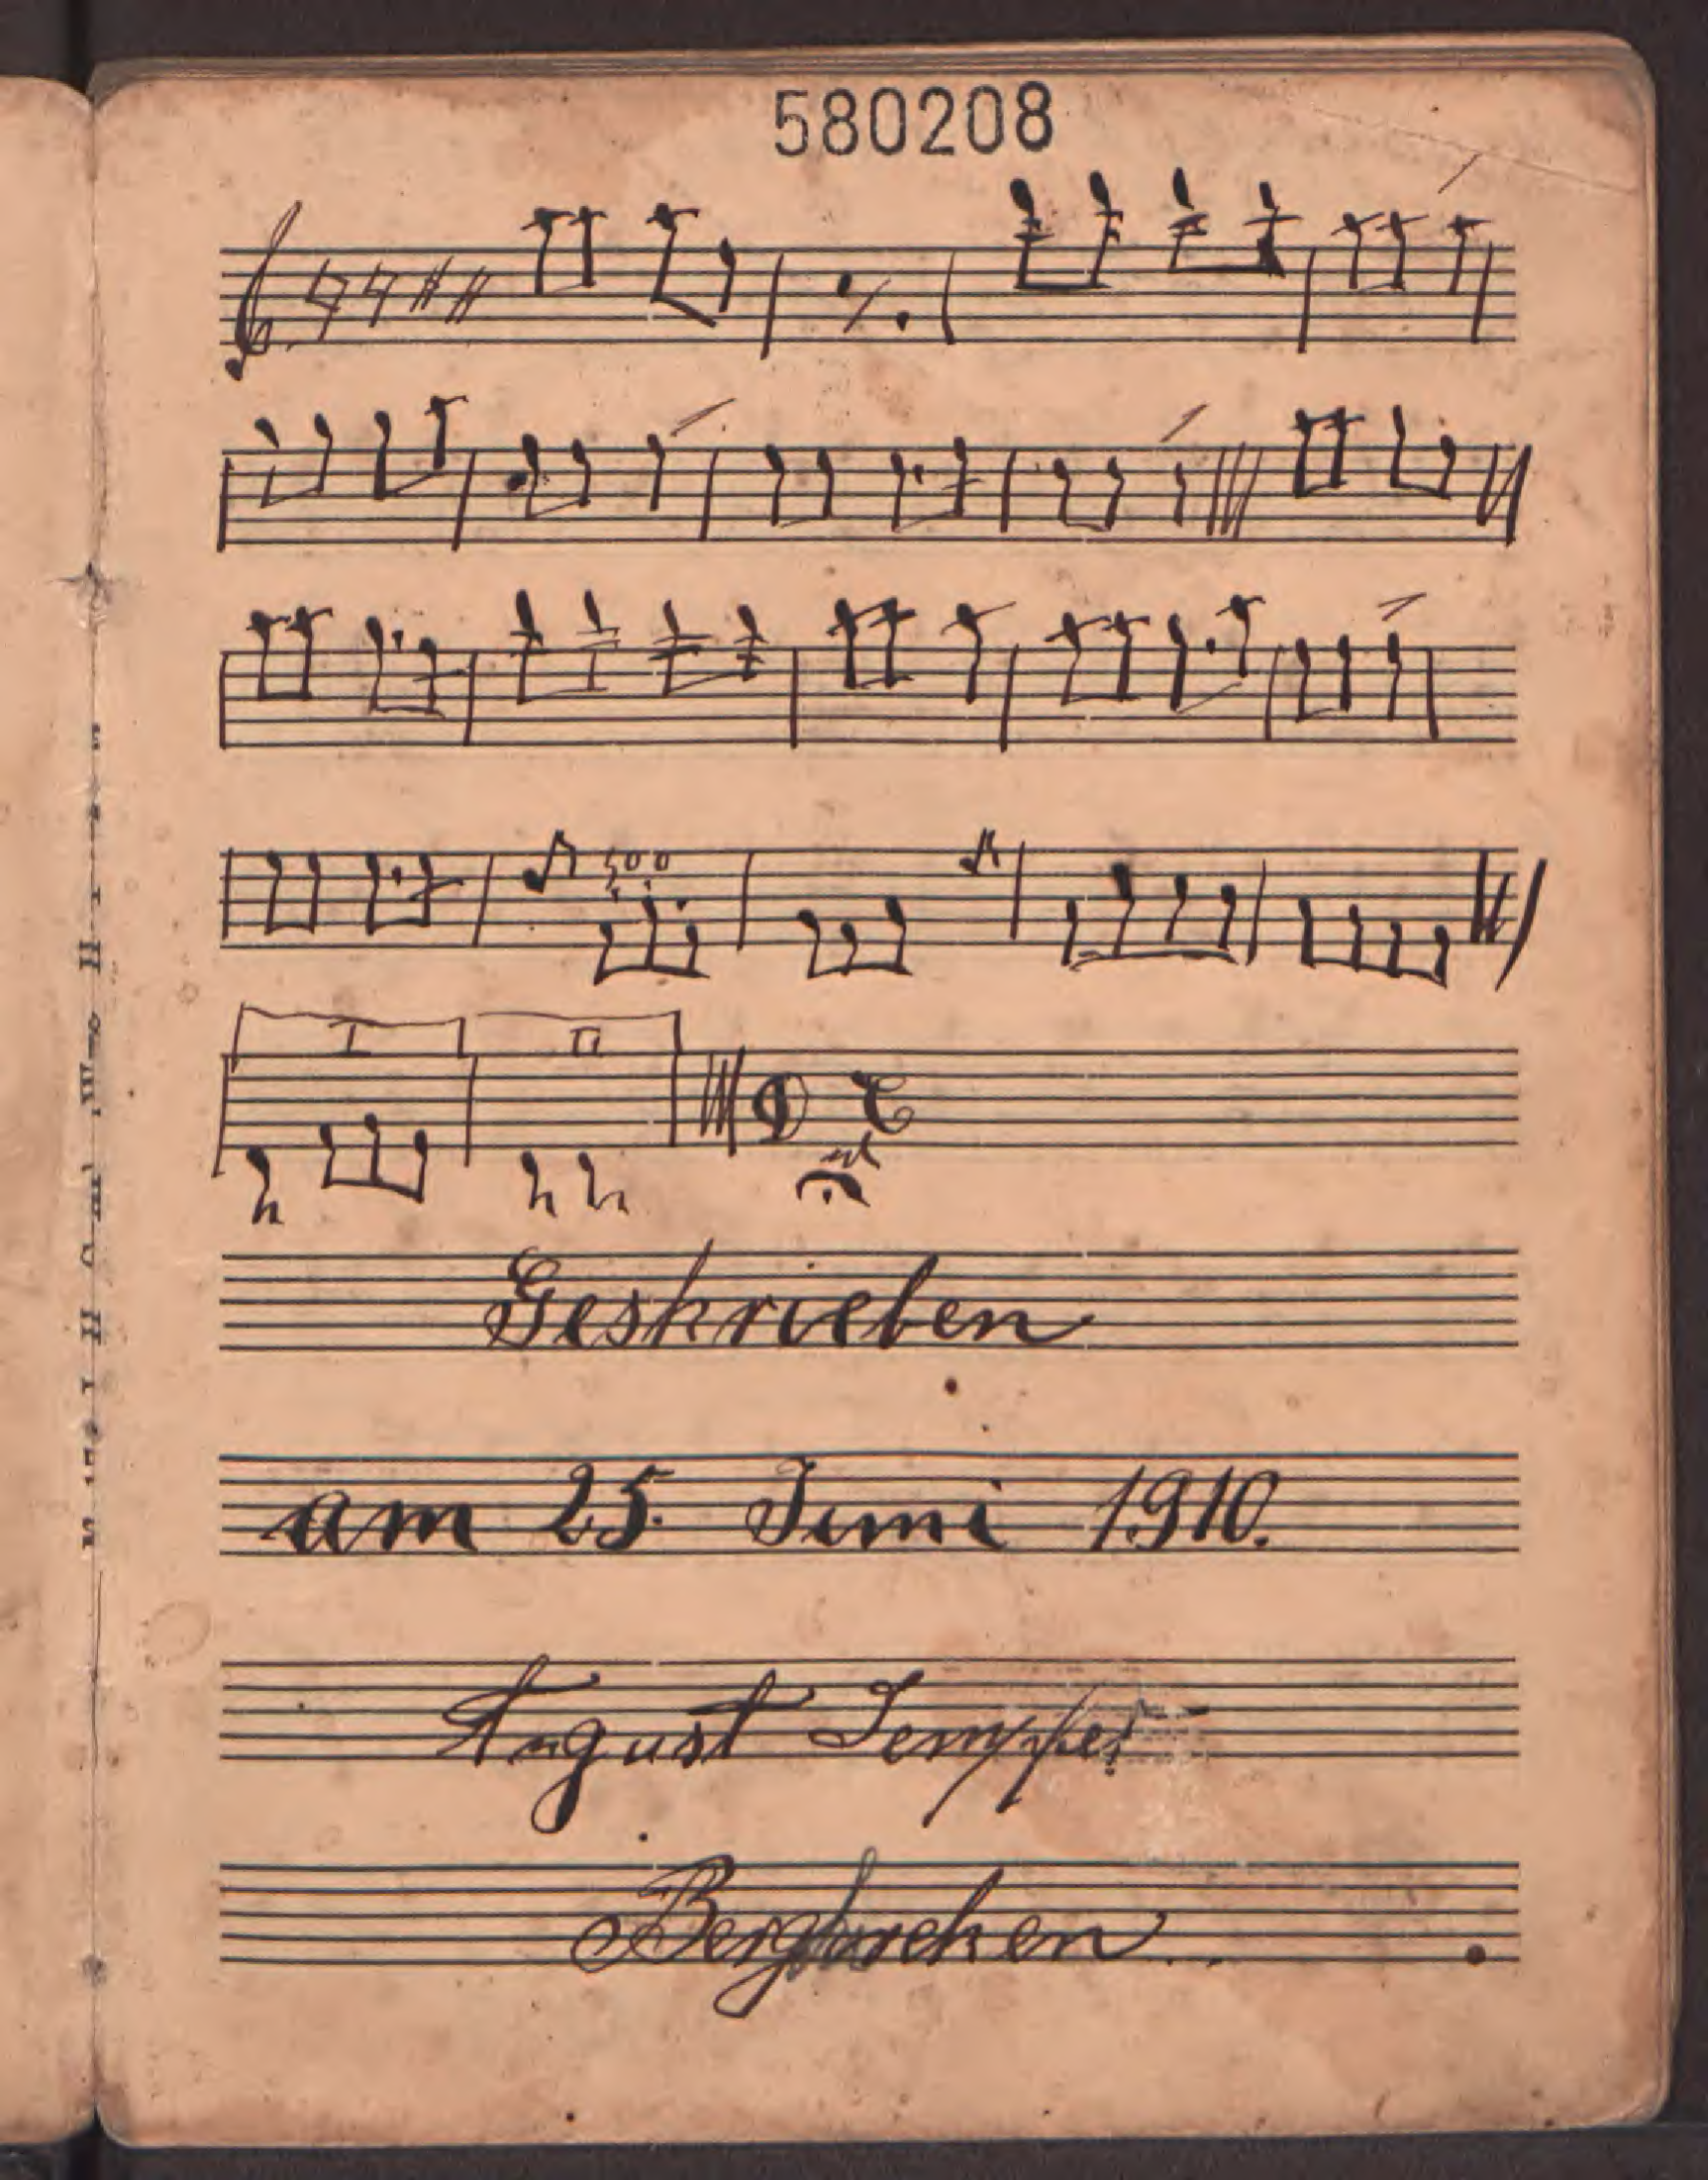 580208
I II
Geskrieben
am 25. Juni 1910.
August Semper
Bergkirchen